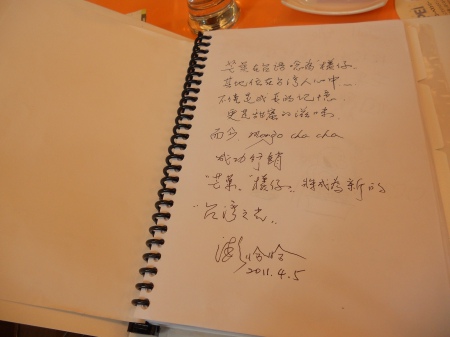 芒果在台語唸為"樣仔"
其地位在台灣人心中…
不僅是成長的記憶
更是甜蜜的滋味.
而今 mango cha cha
成功行銷
"芒果","樣仔", 將成為新的
"台灣之光"
澎恰恰
2011.4.5